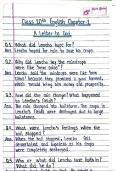 Class 10th English Chapter-1
A Letter to God
Q.1. What did Lencho hope for?
Ans. Lencho hoped for rain to
Q.2. Why did Lencho say the raindrops
were like 'new coins'?
Ans. Lencho said the raindrops were like new
coins because they promised a good harvest,
which would bring him money and prosperity.
Q.3. How did the rain change? What happened
to Lencho's fields?
Ans. The rain changed to hailstorm. The crops in
Lencho's fields were
destroyed
Q.4. What were Lencho's feelings when the
hail stopped?
Ans. When the hail stopped, Lencho felt
and hopeless as his crops
were completely destroyed.
Q.5. Who or what did Lencho have faith in?
What did he do?